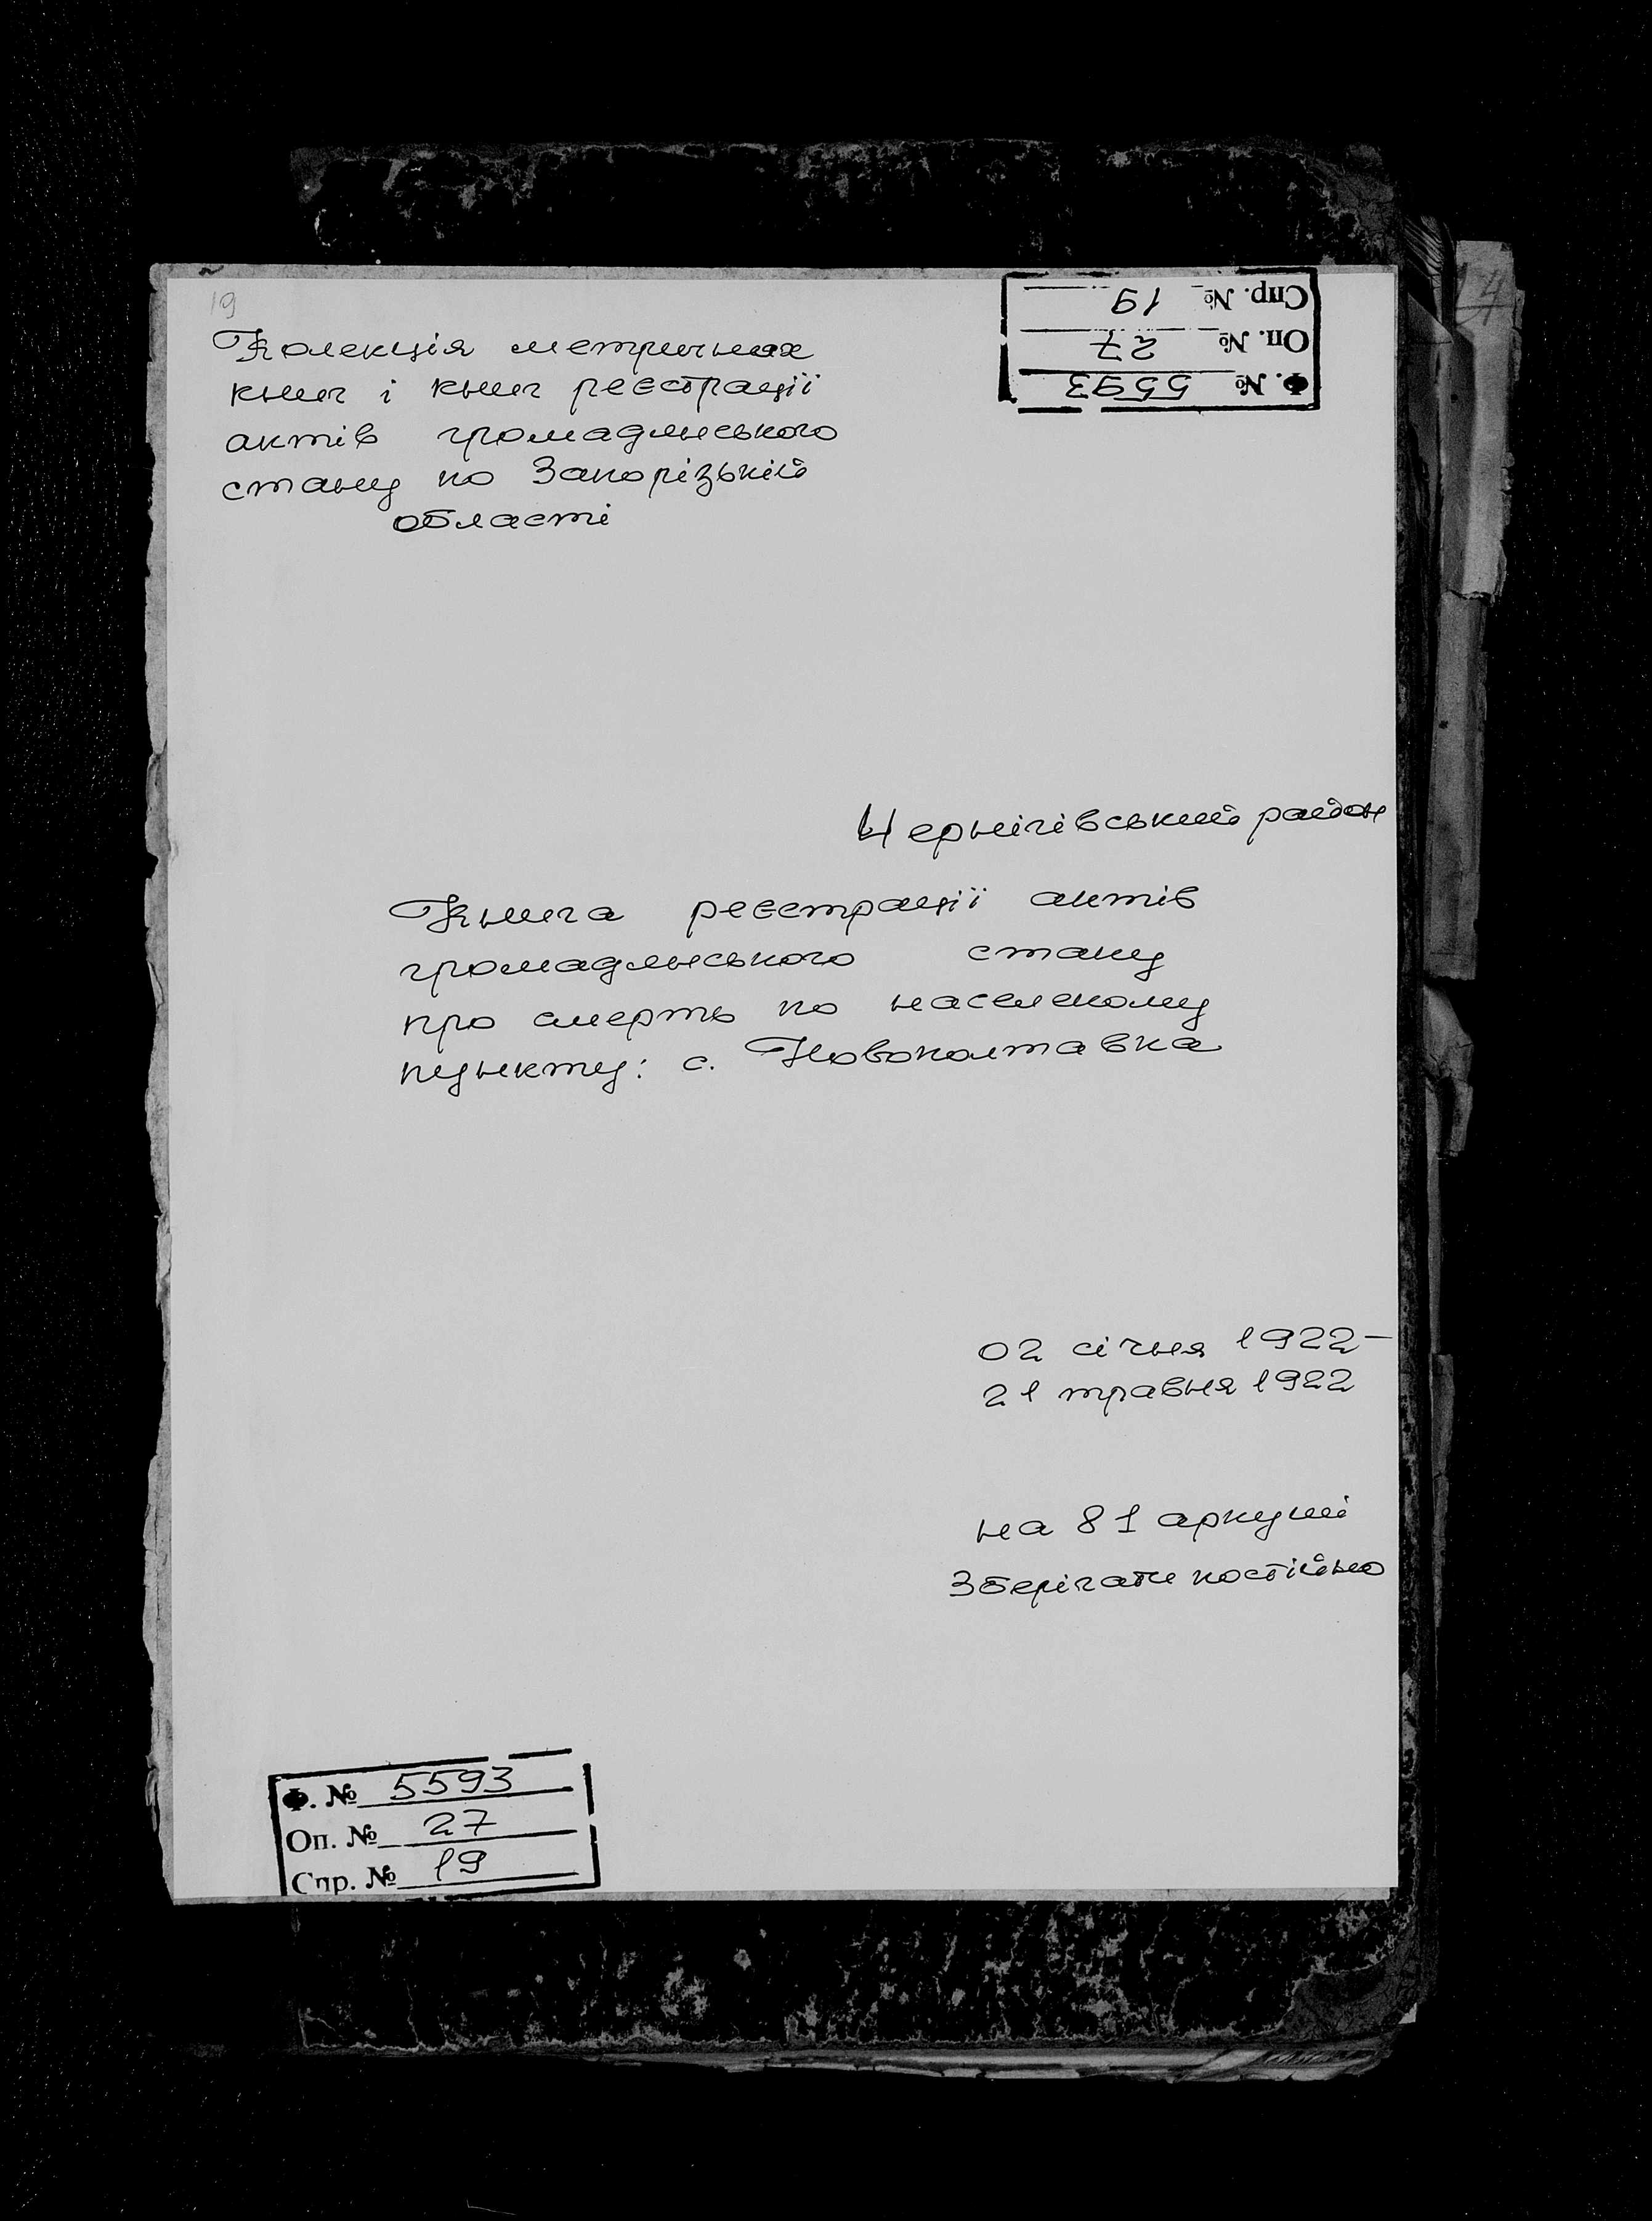 19
Колекція метричних
книг і книг реєстрації
актів громадянського
стану по Запорізькій
області
Ф. № 5593
Оп. № 27
Спр. № 19
Чернігівський район
Книга реєстрації актів
громадянського стану
про смерть по населеному
пункту: с. Новополтавка
02 січня 1922 –
21 травня 1922
на 81 аркуші
Зберігати постійно
Ф. № 5593
Оп. № 27
Спр. № 19